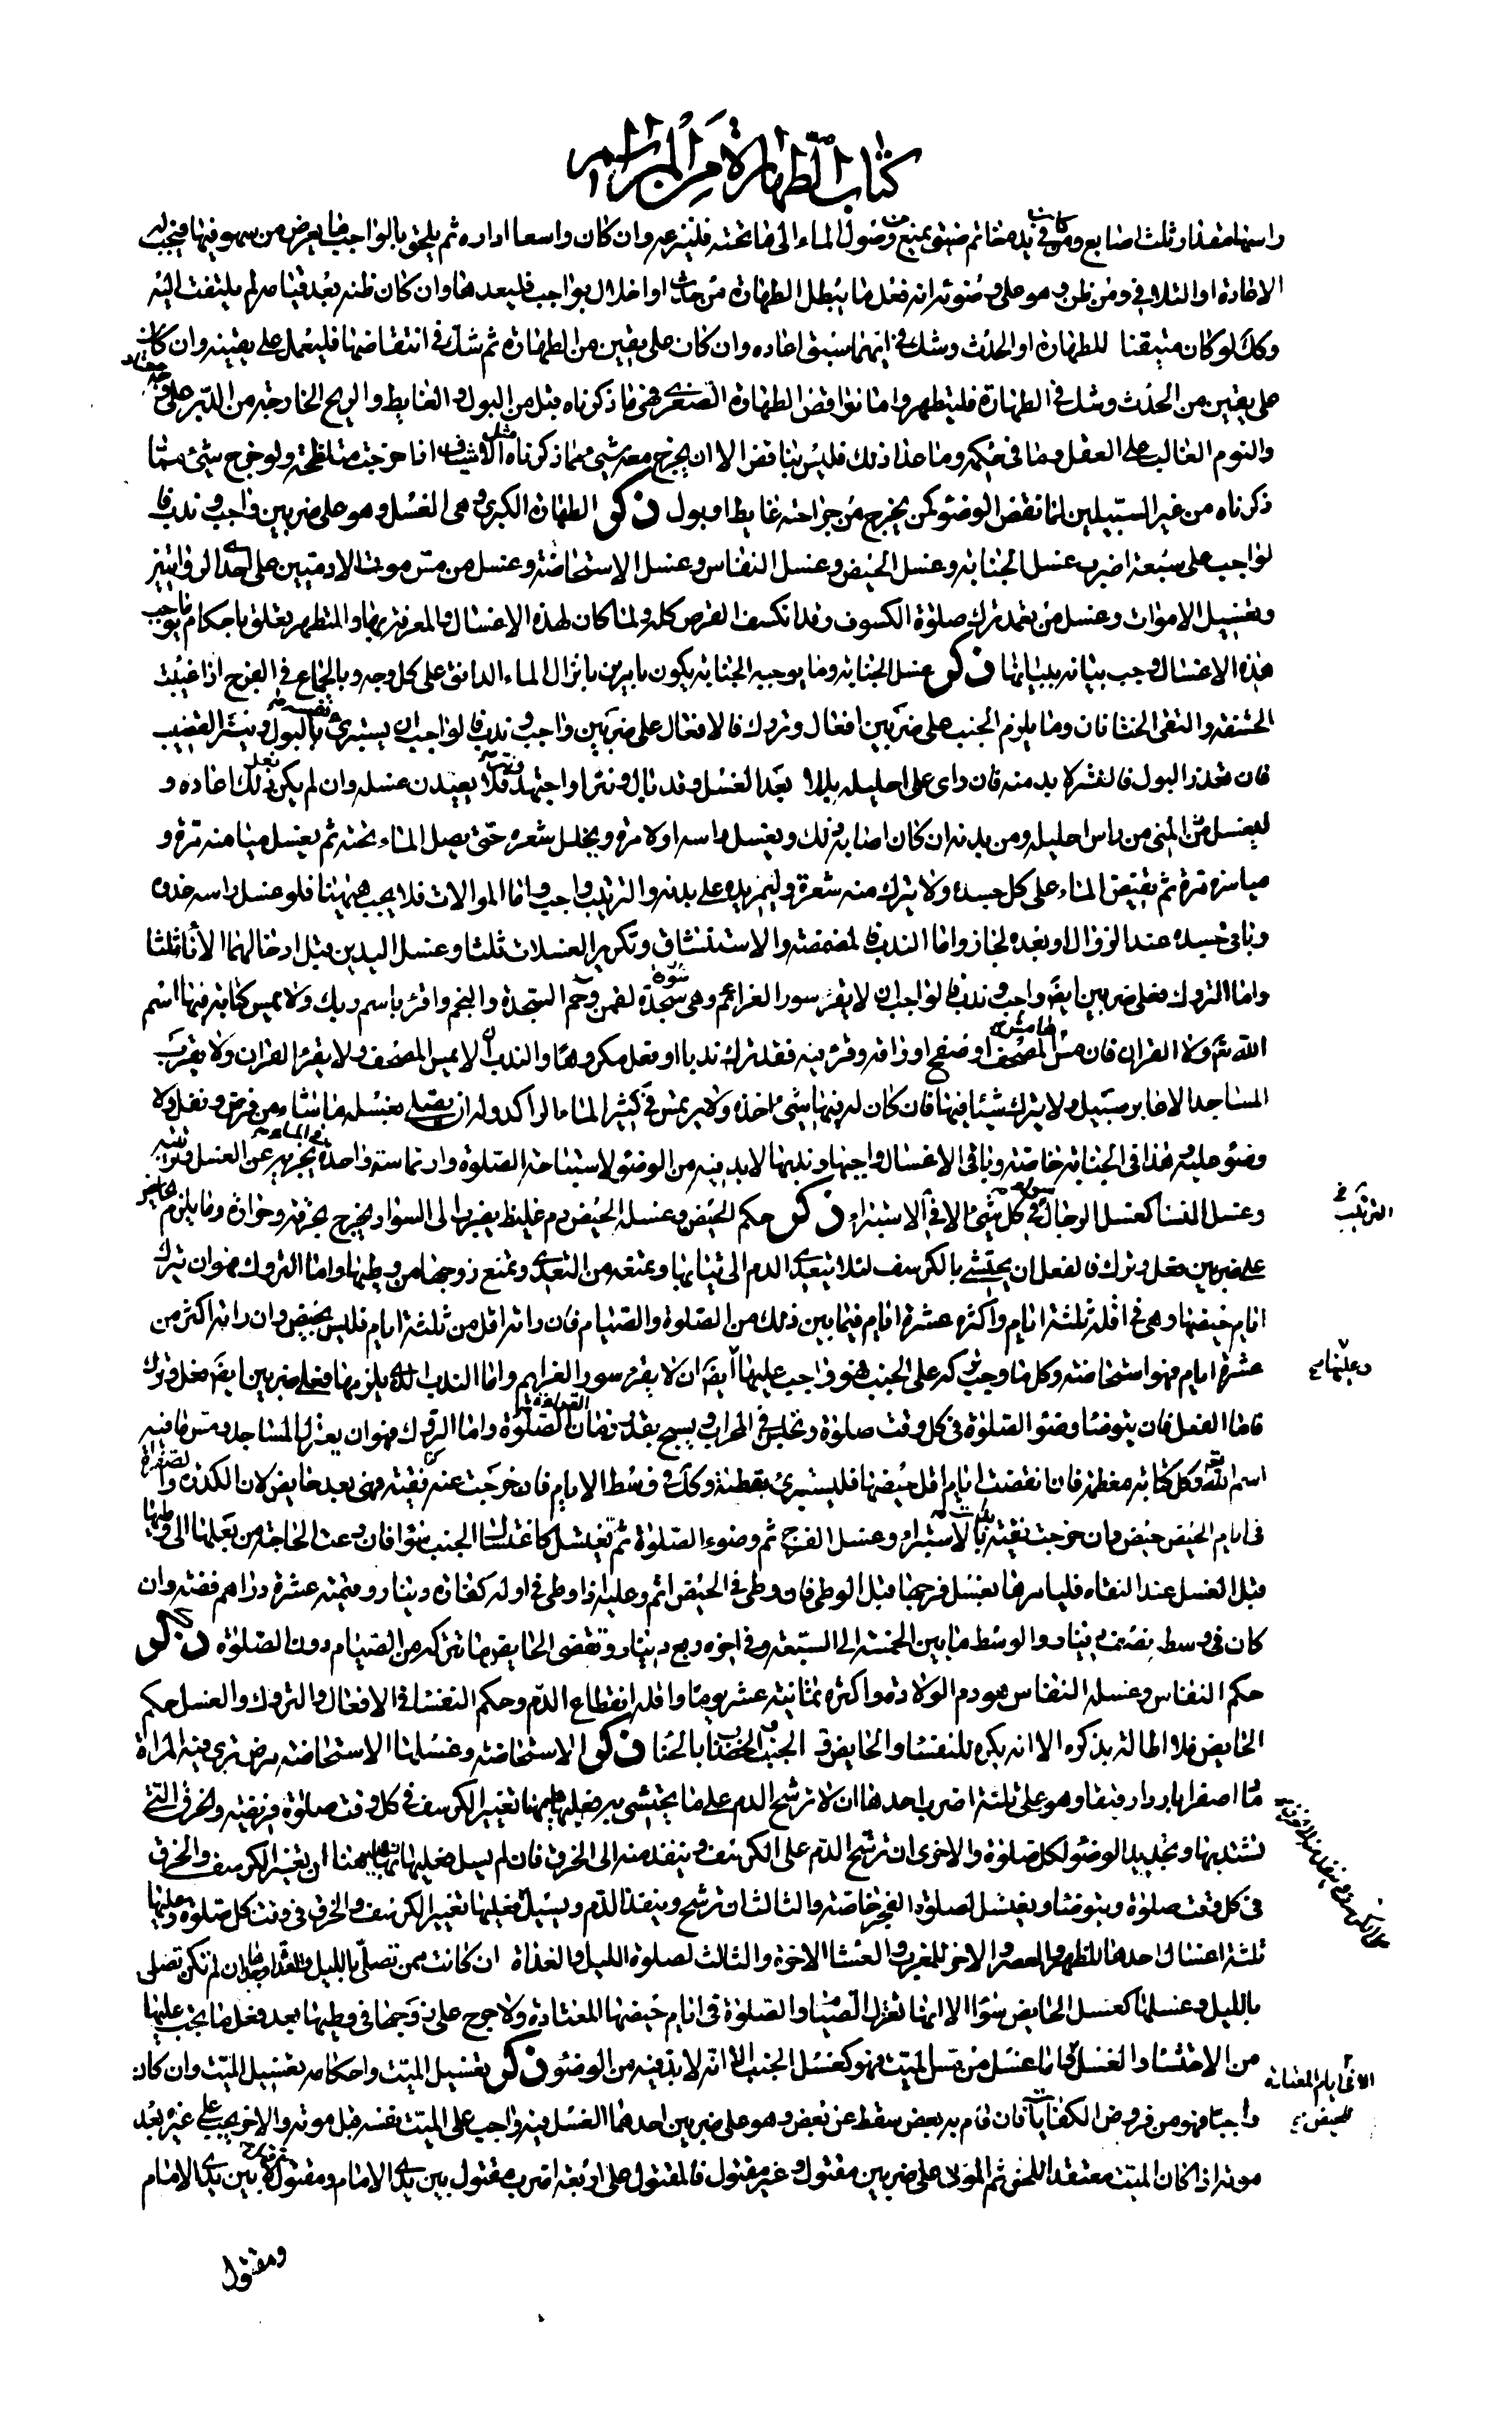 كتاب الطهارة من المراسم
واسها مقدار ثلث اصابع ومن كان في يده خاتم ضيق يمنع من وصول الماء الى ما تحته فلينزعه وان كان واسعا اداره ثم يلحق بالواجب ما يعرض من سهو فيها فيجب له
الاعادة او التلافي ومن ظن وهو على وضوئه انه فعل ما يبطل الطهارة من حادث او اخلال بواجب فليعدها وان كان ظنه بعد قيامه لم يلتفت اليه
وكك لو كان متيقنا للطهارة او الحدث وشك في ايهما سبق اعاده وان كان على يقين من الطهارة ثم شك في انتقاضها فليعمل على يقينه وان كان
على يقين من الحدث وشك في الطهارة فليتطهر واما نواقض الطهارة الصغرى فهي ما ذكرناه قبل من البول والغايط والريح الخارجة من الدبر على وجه معتاد
والنوم الغالب على العقل وما في حكمه وما عدا ذلك فليس بناقض الا ان يخرج معه شيء مما ذكرناه مثل الاشياف اذا خرجت متلطخة ولو خرج شيء مما
ذكرناه من غير السبيلين لما نقض الوضوء كمن يخرج من جراحته غايط او بول ذكر الطهارة الكبرى وهي الغسل وهو على ضربين واجب وندب فا
لواجب على سبعة اضرب غسل الجنابة وغسل الحيض وغسل النفاس وغسل الاستحاضة وغسل من مس موتى الادميين على احدى الروايتين
وتغسيل الاموات وغسل من تعمد ترك صلوة الكسوف وقد انكسف القرص كله ولما كان لهذه الاغسال والمعرفة بها والمتطهر تعلق باحكام ما يوجب
هذه الاغسال وجب بيانه ببيانها ذكر غسل الجنابة وما يوجبه الجنابة يكون بامرين بانزال الماء الدافق على كل وجه وبالجماع في الفرج اذا غيبت
الحشفة والتقى الختانان وما يلزم الجنب على ضربين افعال وتروك فالافعال على ضربين واجب وندب فالواجب ان يستبرئ نفسه بالبول وينتر القضيب
فان تعذر البول فالنتر لا بد منه فان راى على احليله بللا بعد الغسل وقد بال ونتر او اجتهد فلا يعيدن غسله وان لم يكن فعل ذلك اعاده و
ليغسل المني من راس احليله ومن بدنه ان كان اصابه ذلك ويغسل راسه اولا مرة ويخلل شعره حتى يصل الماء تحته ثم يغسل ميامنه مرة و
مياسره مرة ثم يفيض الماء على كل جسده ولا يترك منه شعرة وليمر يديه على بدنه والترتيب واجب واما الموالات فلا يجب هيهنا فلو غسل راسه غدوة
وباقي جسده عند الزوال او بعده لجاز واما الندب فالمضمضة والاستنشاق وتكرير الغسلات ثلثا وغسل اليدين قبل ادخالهما الاناء ثلثا
واما التروك فعلى ضربين ايض واجب وندب فالواجب ان لا يقرء سور العزائم وهي سورة سجدة لقمن وحم السجدة والنجم واقرء باسم ربك ولا يمس كتابة فيها اسم
الله تع ولا القران فان مس هامش المصحف او صفح اوراقه وقرء فيه فقد ترك ندبا او فعل مكروها والندب ان لا يمس المصحف ولا يقرء القران ولا يقرب
المساجد الا عابر سبيل ولا يترك شيئا فيها فان كان له فيها شيء اخذه ولا يرتمس في كثير الماء الراكد وله ان يصلى بغسله ما شاء من فرض ونفل ولا
وضوء عليه هذا في الجنابة خاصة وباقي الاغسال واجبها وندبها لا بد فيه من الوضوء لاستباحة الصلوة وارتماسة واحدة في الماء يجزيه عن الغسل وترتيبه
وغسل النساء كغسل الرجال سواء في كل شيء الا في الاستبراء ذكر حكم الحيض وغسله الحيض دم غليظ يضرب الى السواد يخرج بحرقة وحرارة وما يلزم الحائض
الترتيب في
على ضربين فعل وترك فالفعل ان يحتشى بالكرسف لئلا يتعدى الدم الى ثيابها وتمنعه من التعدى وتمنع زوجها من وطيها واما التروك فهو ان تترك
ايام حيضها وهي في اقله ثلثة ايام واكثره عشرة ايام فيما بين ذلك من الصلوة والصيام فان راته اقل من ثلثة ايام فليس بحيض وان راته اكثر من
عشرة ايام فهو استحاضة وكل ما وجب تركه على الجنب هو واجب عليها ايض ان لا يقرء سور العزايم واما الندب الذي يلزمها فعلى ضربين ايض فعل وترك
وعليها
فاما الفعل فان يتوضأ وضوء الصلوة في كل وقت صلوة وتجلس في المحراب ويسبح بقدر زمان الصلوة واما التروك فهو ان يعتزل المساجد ومس ما فيه
اسم الله تع وكل كتابة معظمة فان انقضت ايام اقل حيضها فليستبرئ بقطنة وكك في وسط الايام فان خرجت غير نقية فهي بعد حايض لان الكدرة والصفرة
في ايام الحيض حيض وان خرجت نقية بالاستبراء وغسل الفرج ثم وضوء الصلوة ثم تغتسل كاغتسال الجنب سواء فان دعت الحاجة من بعلها الى وطيها
قبل الغسل عند النقاء فليامرها بغسل فرجها قبل الوطي فان وطى في الحيض اثم وعليه اذا وطى في اوله كفارة دينار وقيمته عشرة دراهم فضة وان
كان في وسطه نصف دينار والوسط ما بين الخمسة الى السبعة وفي اخره ربع دينار وتقضى الحايض ما تتركه من الصيام دون الصلوة ذكر
حكم النفاس وغسله النفاس هو دم الولادة واكثره ثمانية عشر يوما واقله انقطاع الدم وحكم النفساء في الافعال والتروك والغسل حكم
الحايض فلا اطالة بذكره الا انه يكره للنفساء والحايض والجنب الخضاب بالحناء ذكر الاستحاضة وغسلها الاستحاضة مرض تري فيه المراة
دما اصفر باردا رقيقا وهو على ثلثة اضرب احدها ان لا ترشح الدم على ما يحتشى به فعليها تغيير الكرسف في كل وقت صلوة فريضة والخرق التي
تشتد بها وتجديد الوضوء لكل صلوة والاخرى ان ترشح الدم على الكرسف وينفذ منه الى الخرق فان لم يسل فعليها هيهنا ان تغير الكرسف والخرق
في كل وقت صلوة وتتوضأ ويغتسل لصلوة الفجر خاصة والثالث ان ترشح وينفذ الدم ويسيل فعليها تغيير الكرسف والخرق في وقت كل صلوة وعليها
ثلثة اغسال احدها للظهر والعصر والاخر للمغرب والعشاء الاخرة والثالث لصلوة الليل والغداة ان كانت ممن تصلي بالليل والغداة وحدها ان لم تكن تصلى
بالليل وغسلها كغسل الحايض سواء الا انها تعتزل الصيام والصلوة في ايام حيضها المعتادة ولا حرج على زوجها في وطيها بعد فعل ما يجب عليها
من الاحتشاء والغسل فاما غسل من مس الميت فهو كغسل الجنب الا انه لا بد فيه من الوضوء ذكر تغسيل الميت واحكامه تغسيل الميت وان كان
الا في ايام المعتادة للحيض
واجبا فهو من فروض الكفايات فان قام به بعض سقط عن بعض وهو على ضربين احدهما الغسل فيه واجب على الميت نفسه قبل موته والاخر يجب على غيره بعد
موته اذا كان الميت معتقد اللحق ثم الموتى على ضربين مقتول وغير مقتول فالمقتول على اربعة اضرب مقتول بين يدي الامام ومقتول لا بين يدي الامام
ومقتول